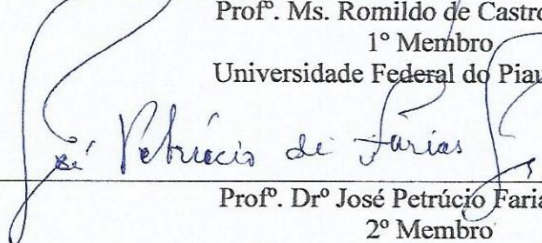 Profº. Ms. Romildo de Castro
1º Membro
Universidade Federal do Piau
José Petrúcio de Farias
Profº. Drº José Petrúcio Faria
2º Membro